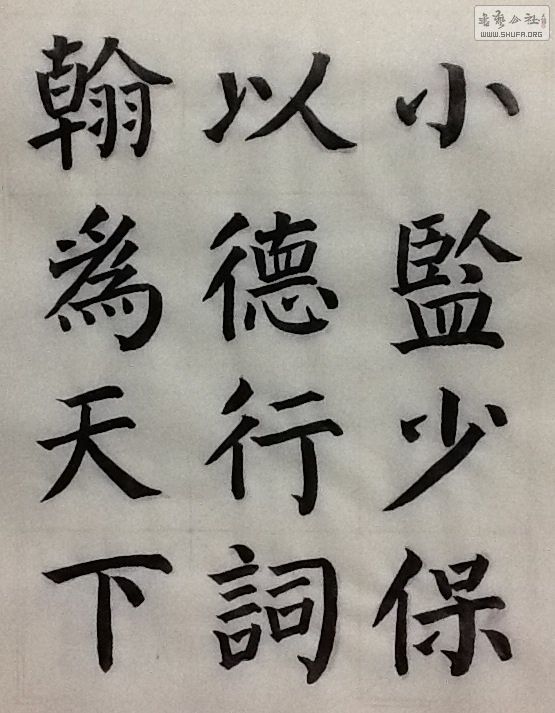 小監少保
以德行詞
翰為天下
WWW.SHUFA.ORG